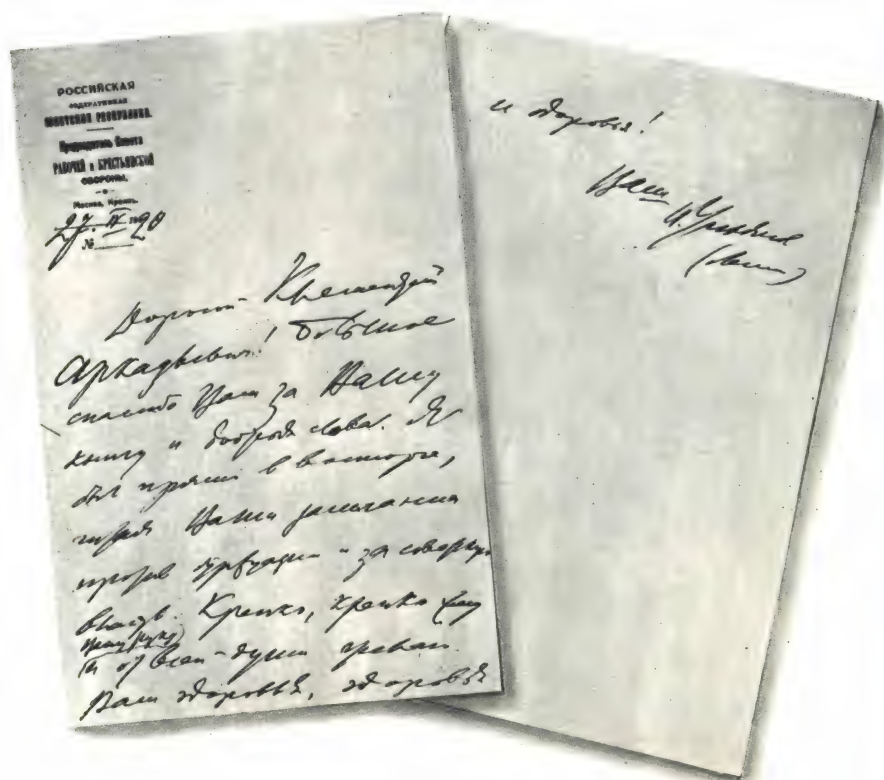 РОССИЙСКАЯ
ФЕДЕРАТИВНАЯ
СОВЕТСКАЯ РЕСПУБЛИКА.
Председатель Совета
РАБОЧЕЙ и КРЕСТЬЯНСКОЙ
ОБОРОНЫ.
Москва, Кремль.
27. IV 1920
№
Дорогой Климентий
Аркадьевич! Большое
спасибо Вам за Вашу
книгу и добрые слова. Я
был прямо в восторге,
читая Ваши замечания
против буржуазии и за советскую
власть. Крепко, крепко жму
Вашу руку
и от всей души желаю
Вам здоровья, здоровья
и здоровья!
Ваш
В. Ульянов
(Ленин)